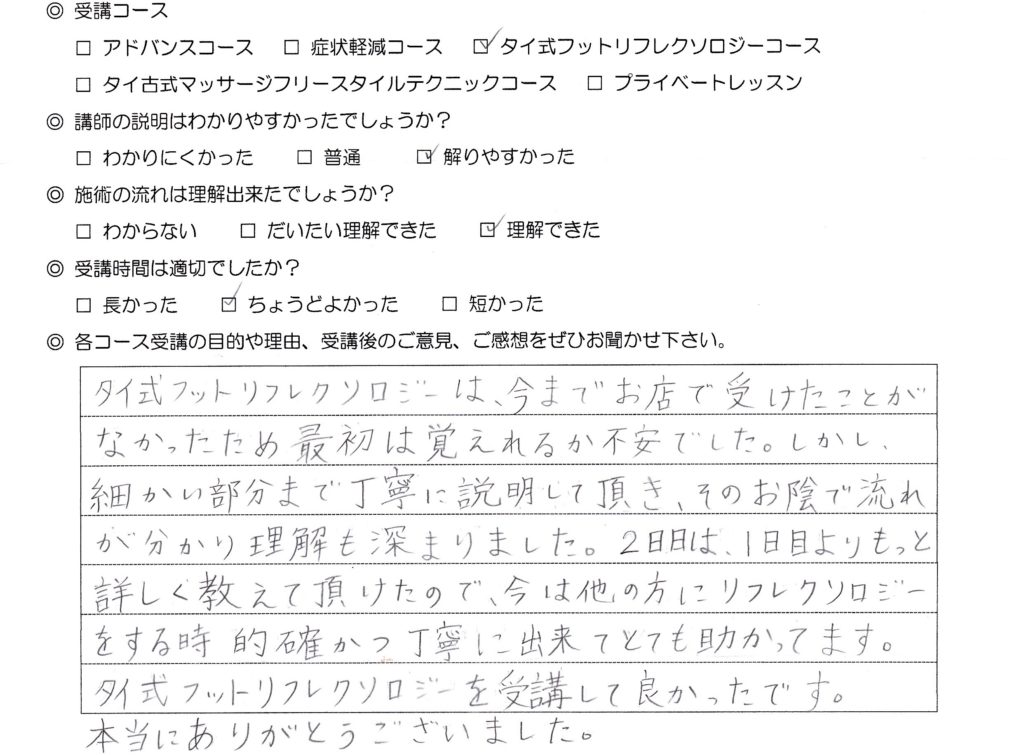 ◎ 受講コース
□ アドバンスコース □ 症状軽減コース ☑ タイ式フットリフレクソロジーコース
□ タイ古式マッサージフリースタイルテクニックコース □ プライベートレッスン
◎ 講師の説明はわかりやすかったでしょうか？
□ わかりにくかった □ 普通 ☑ 解りやすかった
◎ 施術の流れは理解出来たでしょうか？
□ わからない □ だいたい理解できた ☑ 理解できた
◎ 受講時間は適切でしたか？
□ 長かった ☑ ちょうどよかった □ 短かった
◎ 各コース受講の目的や理由、受講後のご意見、ご感想をぜひお聞かせ下さい。
タイ式フットリフレクソロジーは、今までお店で受けたことが
なかったため最初は覚えれるか不安でした。しかし、
細かい部分まで丁寧に説明して頂き、そのお陰で流れ
が分かり理解も深まりました。2日目は、1日目よりもっと
詳しく教えて頂けたので、今は他の方にリフレクソロジー
をする時 的確かつ丁寧に出来てとても助かってます。
タイ式フットリフレクソロジーを受講して良かったです。
本当にありがとうございました。